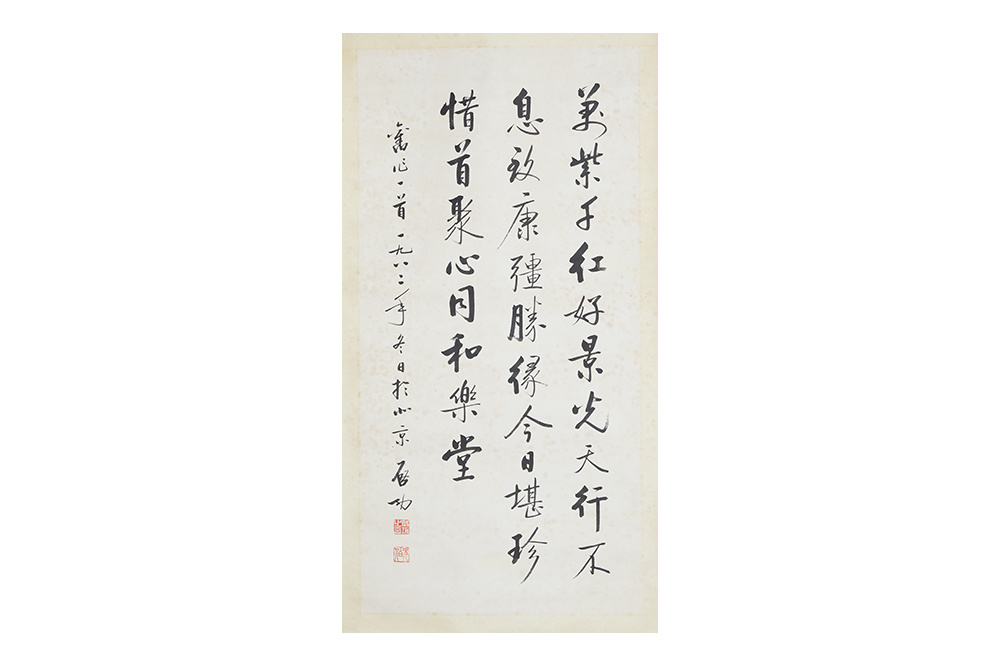 萬紫千紅好景光天行不
息致康彊勝緣今日堪珍
惜首聚心同和樂堂
舊作一首一九八二年冬日於北京啟功